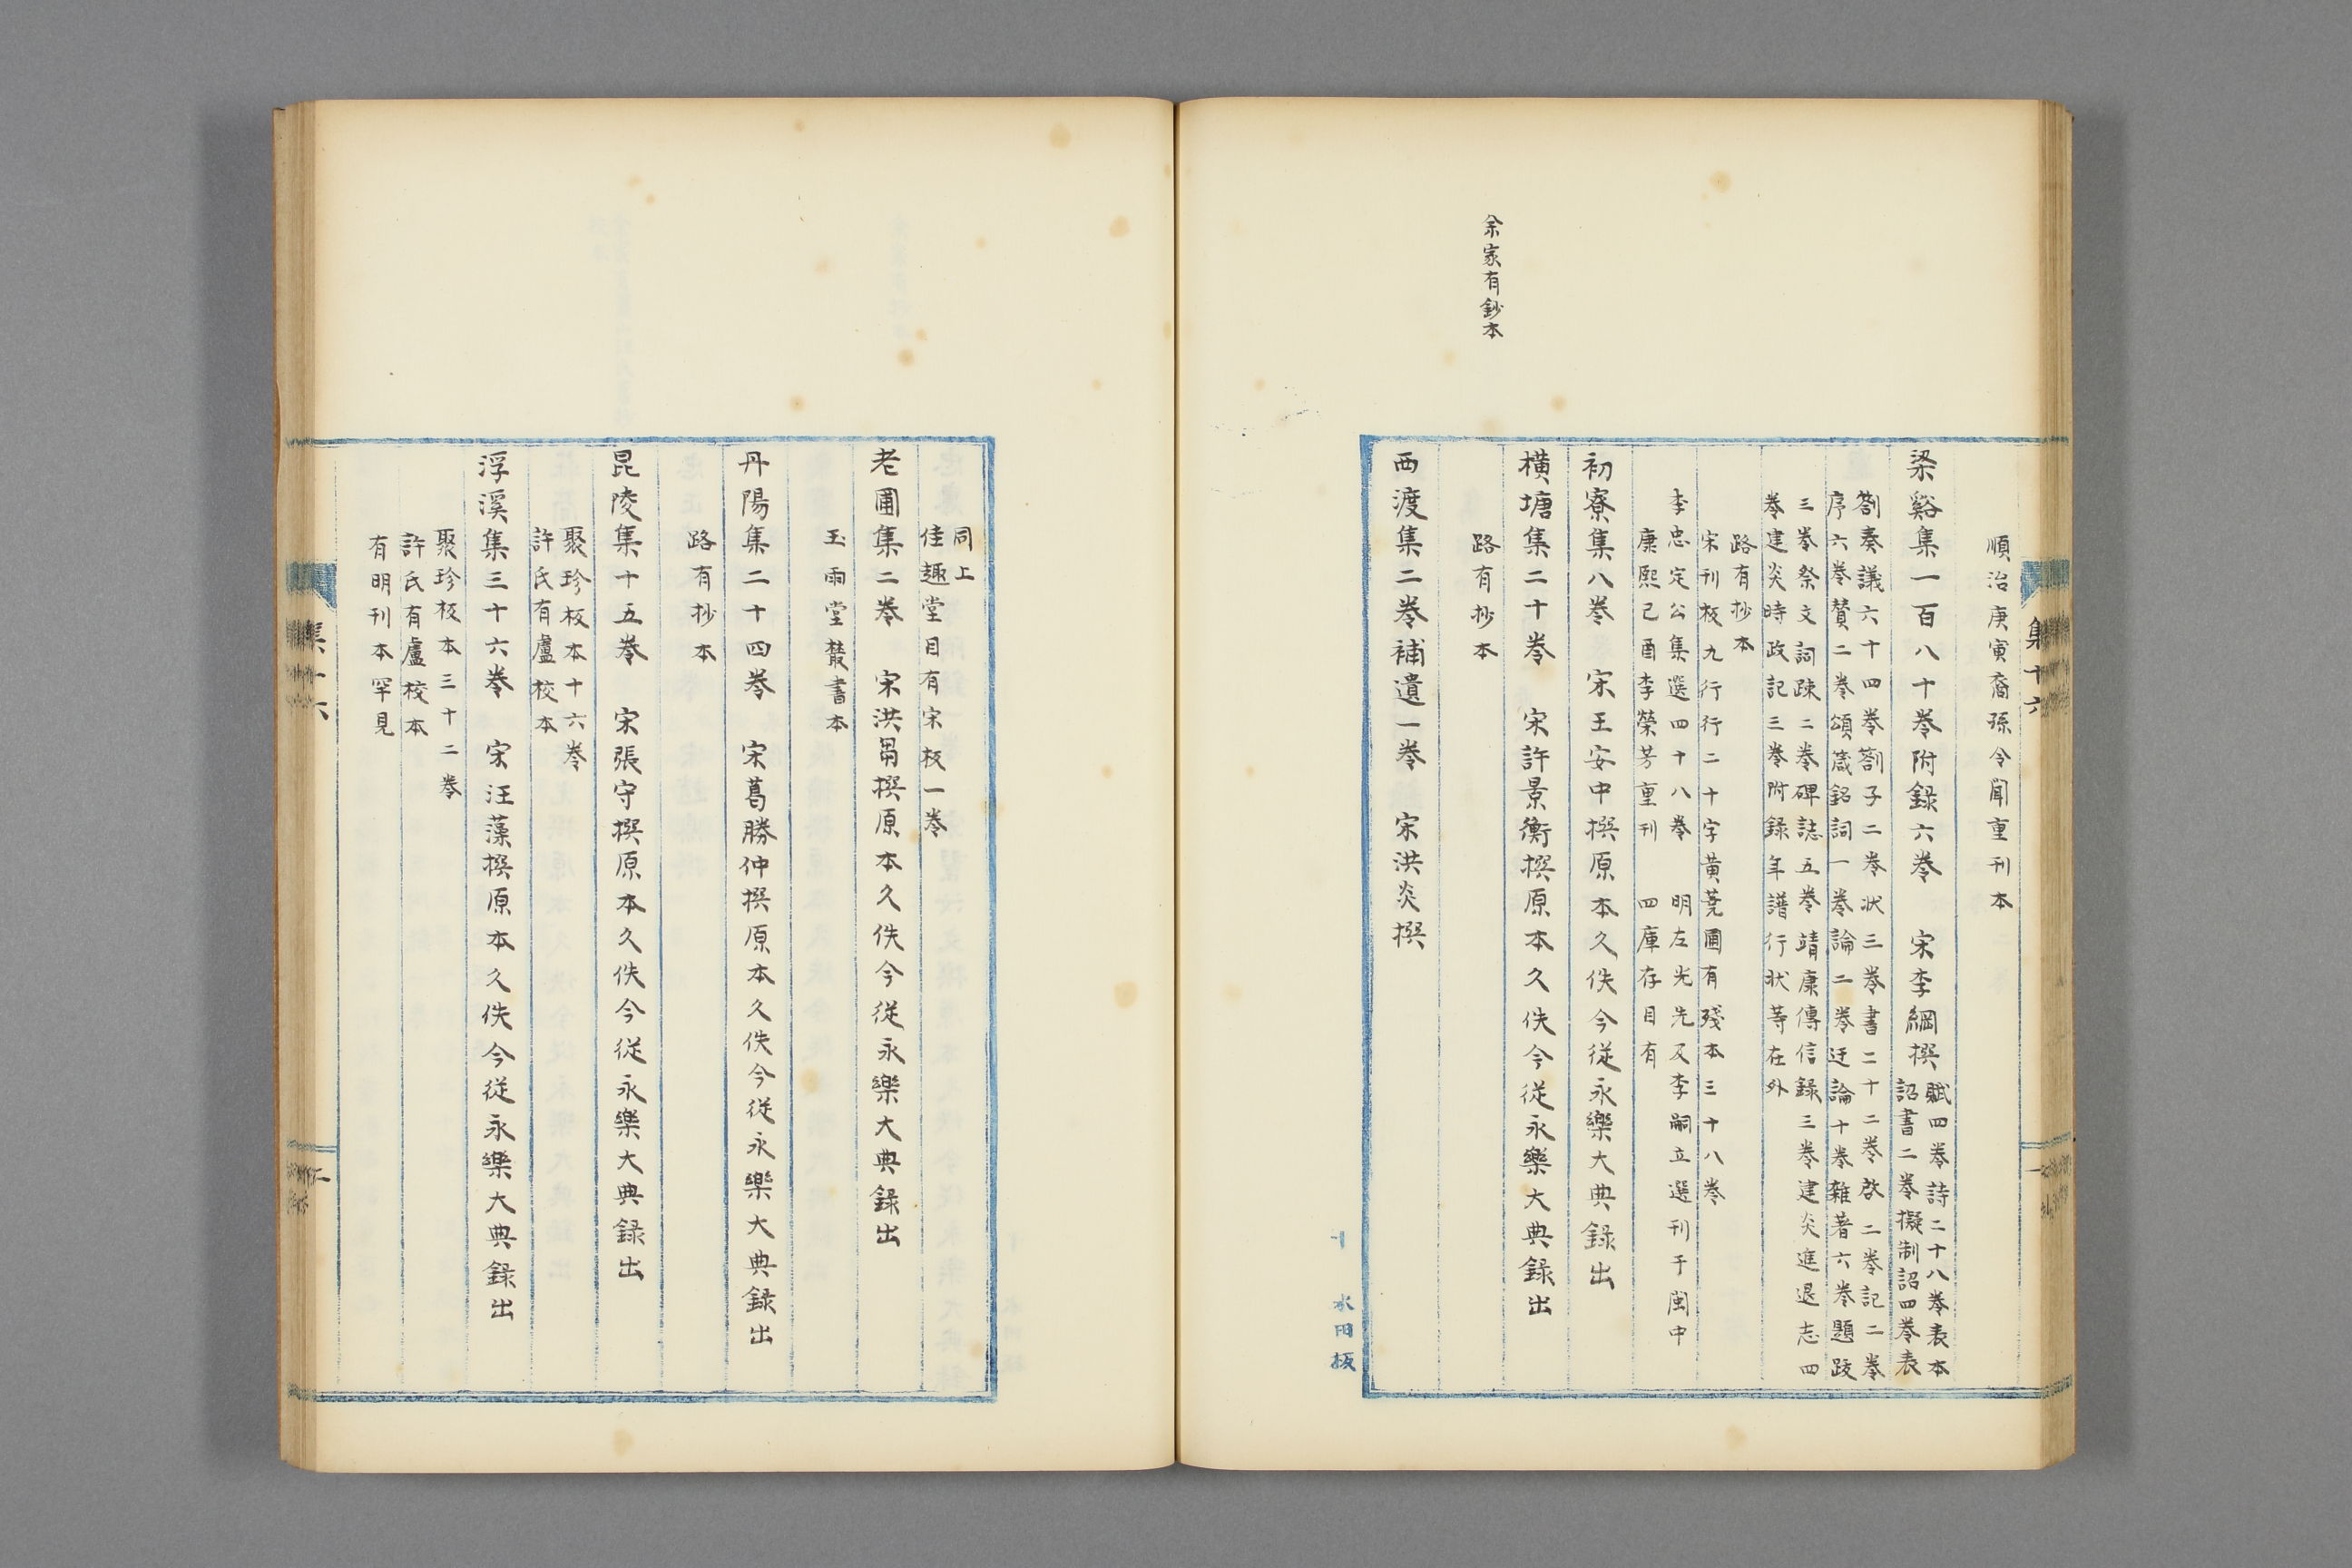 集十六
順治庚寅裔孫令聞重刊本
梁谿集一百八十卷附錄六卷　宋李綱撰
賦四卷詩二十八卷表本
詔書二卷擬制詔四卷表
劄奏議六十四卷劄子二卷狀三卷書二十二卷啟二卷記二卷
序六卷贊二卷頌箴銘詞一卷論二卷迂論十卷雜著六卷題跋
三卷祭文詞疎二卷碑誌五卷靖康傳信錄三卷建炎進退志四
卷建炎時政記三卷附錄年譜行狀等在外
路有抄本
宋刊板九行行二十字黃蕘圃有殘本三十八卷
李忠定公集選四十八卷　明左光先及李嗣立選刊于閩中
康熙己酉李榮芳重刊　四庫存目有
初寮集八卷　宋王安中撰原本久佚今從永樂大典錄出
橫塘集二十卷　宋許景衡撰原本久佚今從永樂大典錄出
余家有鈔本
路有抄本
西渡集二卷補遺一卷　宋洪炎撰
十　水田板
同上
佳趣堂目有宋板一卷
老圃集二卷　宋洪芻撰原本久佚今從永樂大典錄出
玉雨堂叢書本
丹陽集二十四卷　宋葛勝仲撰原本久佚今從永樂大典錄出
路有抄本
昆陵集十五卷　宋張守撰原本久佚今從永樂大典錄出
聚珍板本十六卷
許氏有盧校本
浮溪集三十六卷　宋汪藻撰原本久佚今從永樂大典錄出
聚珍板本三十二卷
許氏有盧校本
有明刊本罕見
集十六